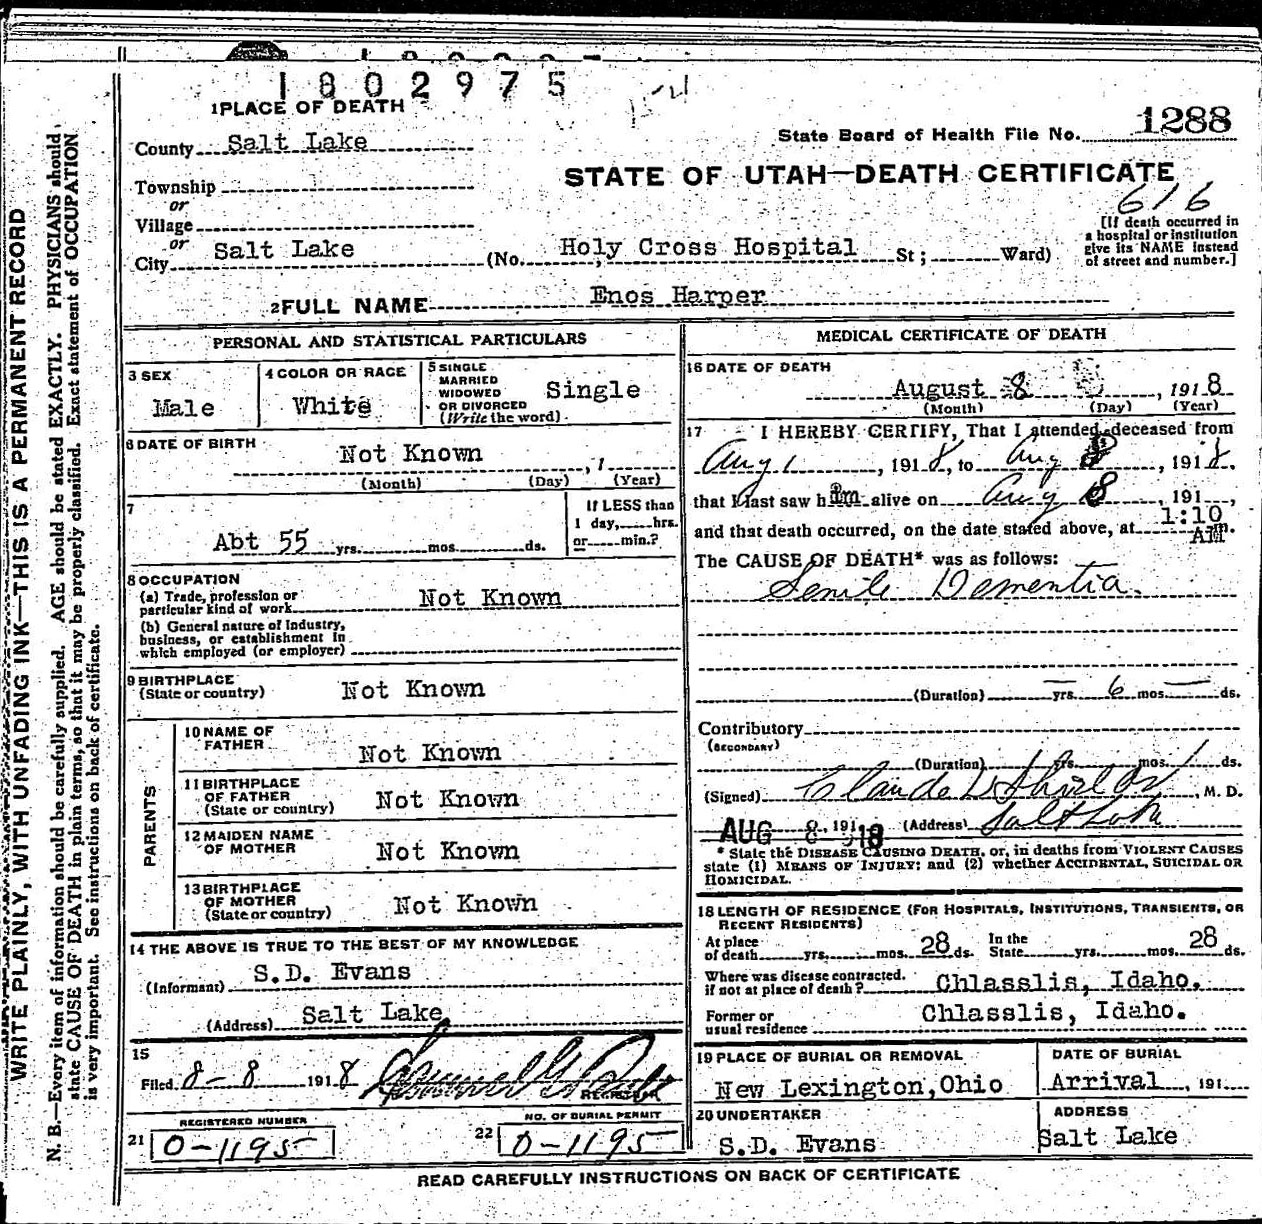 1802975
1 PLACE OF DEATH
State Board of Health File No. 1288
County Salt Lake
STATE OF UTAH—DEATH CERTIFICATE
Township
or
Village
or
City Salt Lake (No. Holy Cross Hospital St; Ward)
616
[If death occurred in
a hospital or institution
give its NAME instead
of street and number.]
2 FULL NAME Enos Harper
PERSONAL AND STATISTICAL PARTICULARS
3 SEX
Male
4 COLOR OR RACE
White
5 SINGLE
MARRIED
WIDOWED
OR DIVORCED
(Write the word)
Single
6 DATE OF BIRTH
Not Known , 1
(Month) (Day) (Year)
7
Abt 55 yrs. mos. ds.
If LESS than
1 day, hrs.
or min.?
8 OCCUPATION
(a) Trade, profession or
particular kind of work Not Known
(b) General nature of Industry,
business, or establishment in
which employed (or employer)
9 BIRTHPLACE
(State or country) Not Known
PARENTS
10 NAME OF
FATHER Not Known
11 BIRTHPLACE
OF FATHER
(State or country) Not Known
12 MAIDEN NAME
OF MOTHER Not Known
13 BIRTHPLACE
OF MOTHER
(State or country) Not Known
14 THE ABOVE IS TRUE TO THE BEST OF MY KNOWLEDGE
(Informant) S.D. Evans
(Address) Salt Lake
15
Filed 8-8 1918
REGISTRAR
REGISTERED NUMBER
21 0-1195
NO. OF BURIAL PERMIT
22 0-1195
MEDICAL CERTIFICATE OF DEATH
16 DATE OF DEATH
August 8 , 1918
(Month) (Day) (Year)
17 I HEREBY CERTIFY, That I attended deceased from
Aug 1 , 1918, to Aug 8 , 1918.
that I last saw him alive on Aug 8 , 191 ,
and that death occurred, on the date stated above, at 1:10 AM m.
The CAUSE OF DEATH* was as follows:
Senile Dementia.
(Duration) — yrs. 6 mos. — ds.
Contributory
(SECONDARY)
(Duration) yrs. mos. ds.
(Signed) Claude , M. D.
AUG 8, 1918 (Address) Salt Lake
* State the DISEASE CAUSING DEATH, or, in deaths from VIOLENT CAUSES
state (1) MEANS OF INJURY; and (2) whether ACCIDENTAL, SUICIDAL OR
HOMICIDAL.
18 LENGTH OF RESIDENCE (FOR HOSPITALS, INSTITUTIONS, TRANSIENTS, OR
RECENT RESIDENTS)
At place
of death yrs. mos. 28 ds.
In the
State yrs. mos. 28 ds.
Where was disease contracted.
if not at place of death? Chlasslis, Idaho.
Former or
usual residence Chlasslis, Idaho.
19 PLACE OF BURIAL OR REMOVAL
New Lexington, Ohio
DATE OF BURIAL
Arrival , 191
20 UNDERTAKER
S.D. Evans
ADDRESS
Salt Lake
READ CAREFULLY INSTRUCTIONS ON BACK OF CERTIFICATE
WRITE PLAINLY, WITH UNFADING INK—THIS IS A PERMANENT RECORD
N. B.—Every item of information should be carefully supplied. AGE should be stated EXACTLY. PHYSICIANS should
state CAUSE OF DEATH in plain terms, so that it may be properly classified. Exact statement of OCCUPATION
is very important. See instructions on back of certificate.